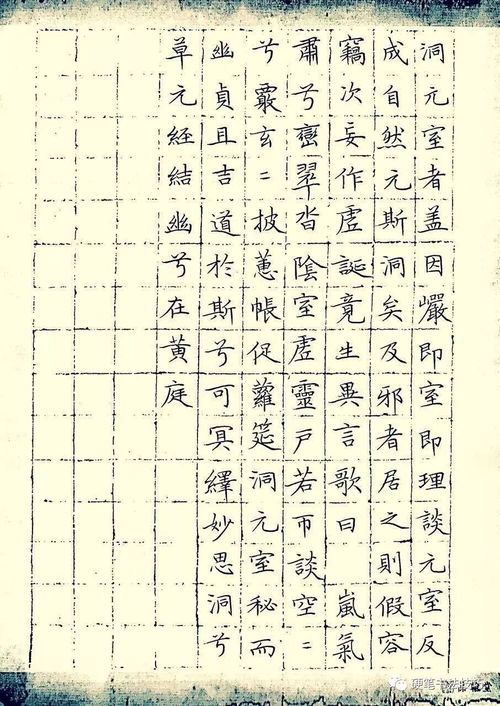 洞元室者盖因巗即室即理談元室反
成自然元斯洞矣及邪者居之則假容
竊次妄作虚誕竟生異言歌曰　嵐氣
肅兮巒翠沓陰室虚靈戸若帀談空〻
兮覈玄〻披蕙帳促蘿筵洞元室秘而
幽貞且吉道於斯兮可冥繹妙思洞兮
草元経結幽兮在黄庭
硬笔